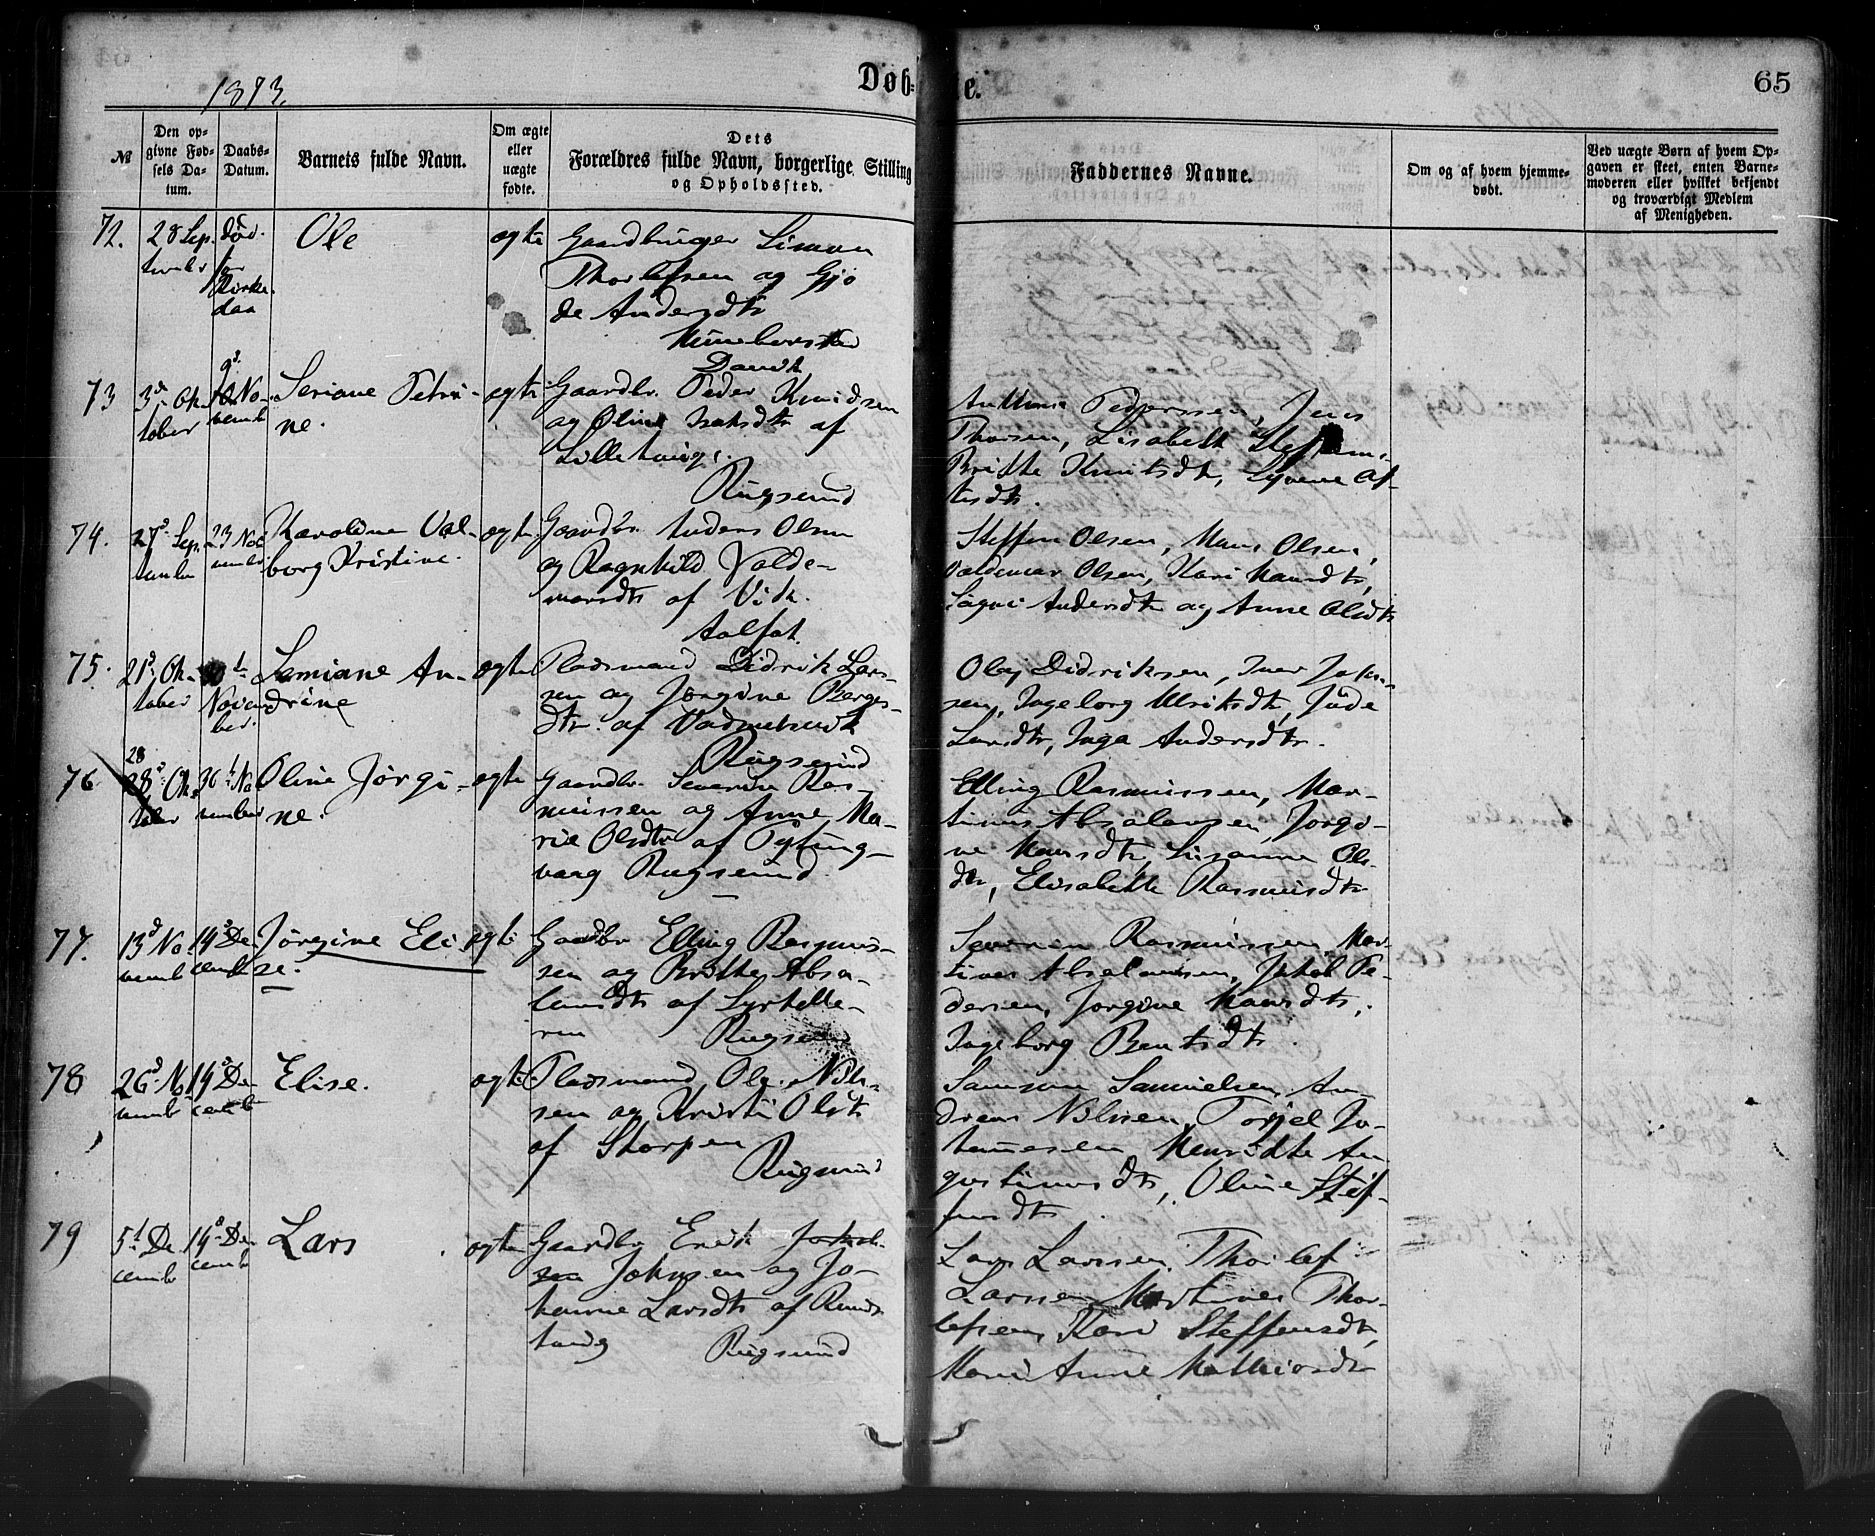 1873.
Døb=
te.
65
№
Den op=
givne Fød=
sels Da=
tum.
Daabs=
Datum.
Barnets fulde Navn.
Om ægte
eller
uægte
fødte.
Dets
Forældres fulde Navn, borgerlige Stilling
og Opholdssted.
Faddernes Navne.
Om og af hvem hjemme=
døbt.
Ved uægte Børn af hvem Op=
gaven er skeet, enten Barne=
moderen eller hvilket bekjendt
og troværdigt Medlem
af Menigheden.
72.
28 Sep.
tember
død
før
Kirke
daa
Ole
ægte
Gaardbruger Simon
Thorlefsen og Gjø
de Andersdtr
Davik
73
3d Ok
tober
9d No
vemb
Seriane Petri-
ne.
ægte
Gaardbr. Peder Knudsen
og Oline Isaksdtr af
Rugsund
Pedersen, Jens
Thorsen, Lisabeth
Britte Knutsdtr,
tesdtr.
74.
27d Sep.
tember
23 No
vember
Karoline Val-
borg Kristine.
ægte
Gaardbr. Anders Olsen
og Ragnhild Valde-
marsdtr af Vik.
Aalfot.
Steffen Olsen, Mons Olsen,
Valdemar Olsen, Kari Monsdtr,
Andersdtr og Anne Olsdtr
75.
21d Ok
tober
30t
Novem
ber.
Semiane An-
drine
ægte
Pladsmand Didrik Lars-
sen og Jørgine Berges-
dtr. af
Rugsund
Ole Didriksen, Iver Johan-
sen, Ingeborg Ulriksdtr,
Larsdtr, Inga Andersdtr.
76
28
28d Ok
tober
30t No
vember
Oline Jørgi-
ne.
ægte
Gaardbr. Severin Ras-
mussen og Anne Ma-
rie Olsdtr af
vaag Rugsund.
Elling Rasmussen, Mar-
tinus Absalonsen, Jørgi-
ne Monsdtr, Susanne Ols-
dtr, Elisabeth Rasmusdtr
77.
13d No
vemb
14d De
cemb
Jørgine Eli
se.
ægte
Gaardbr Elling Rasmus-
sen og Britte Absa-
lonsdtr af
Rugsund
Severin Rasmussen, Mar-
tinus Absalonsen, Jakob Pe-
dersen, Jørgine Monsdtr,
Ingeborg Bentsdtr.
78
26d No
vemb
14d De
cemb
Elise.
ægte
Pladsmand Ole Nils-
sen og Kristi Olsdtr
af Storpen
Rugsund
Samson Samuelsen, An
dreas Nilssen, Torjel Jo-
hannesen
gustinusdtr, Oline Stef-
fensdtr.
79
5t De
cemb
14d De
cemb
Lars
ægte
Gaardbr Erik Jakob-
sen Johnsen og Jo-
hanne Larsdtr af
Rugsund
Lars Larssen, Thorlef
Larsen, Martines Thor-
lefsen, Kari Steffensdtr,
Anne Mathiasdtr